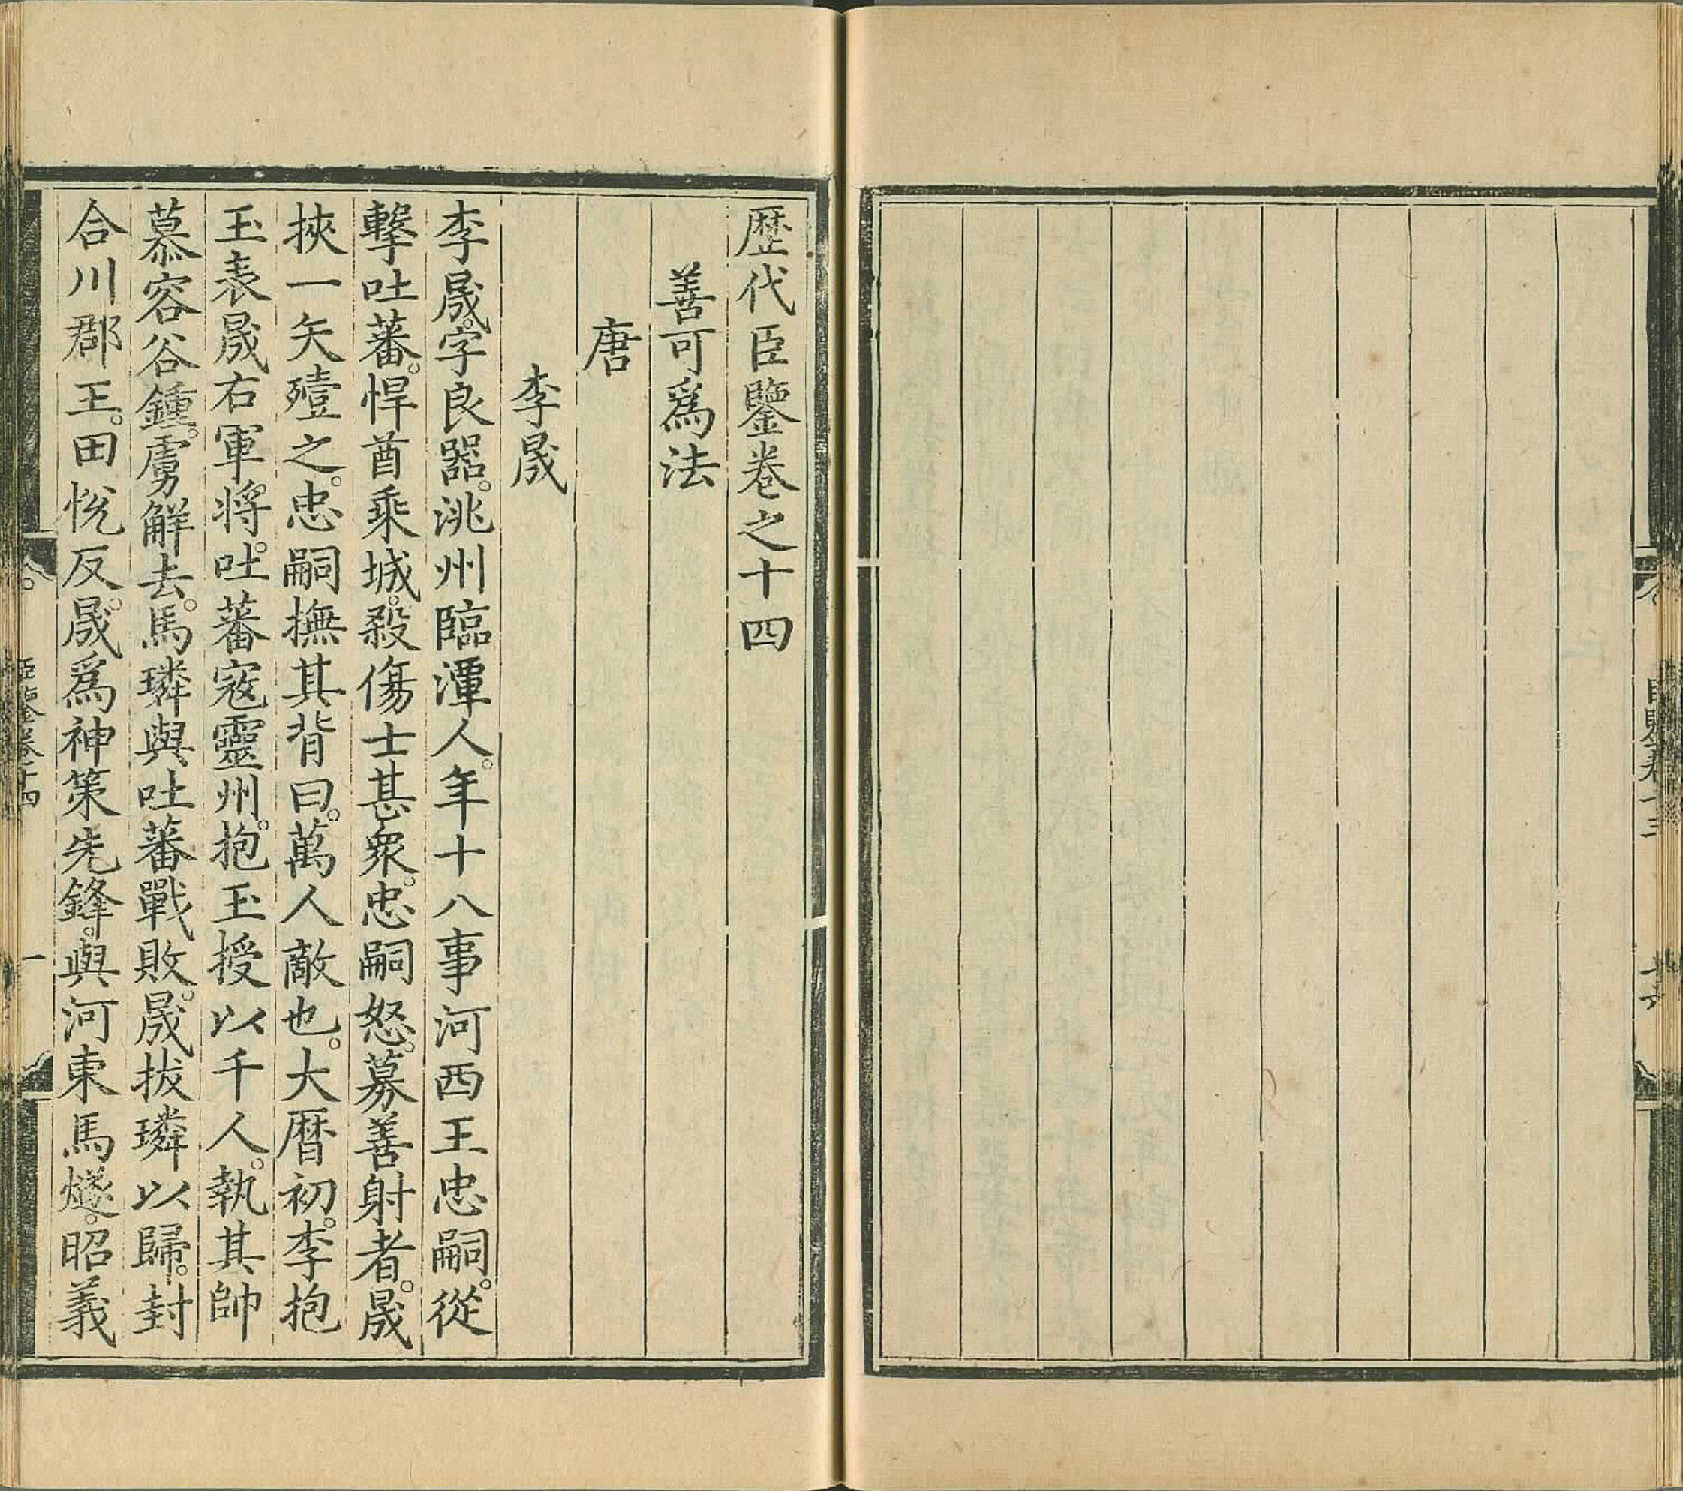 歷代臣鑒卷之十四
善可爲法
唐
李晟
李晟。字良器。洮州臨潭人。年十八事河西王忠嗣。從
擊吐蕃。悍酋乘城。殺傷士甚衆。忠嗣怒。募善射者。晟
挾一矢殪之。忠嗣撫其背曰。萬人敵也。大曆初。李抱
玉表晟右軍將。吐蕃寇靈州。抱玉授以千人。執其帥
慕容谷鍾。虜解去。馬璘與吐蕃戰敗。晟拔璘以歸。封
合川郡王。田悅反。晟爲神策先鋒。與河東馬燧。昭義
臣鑒卷十四
一